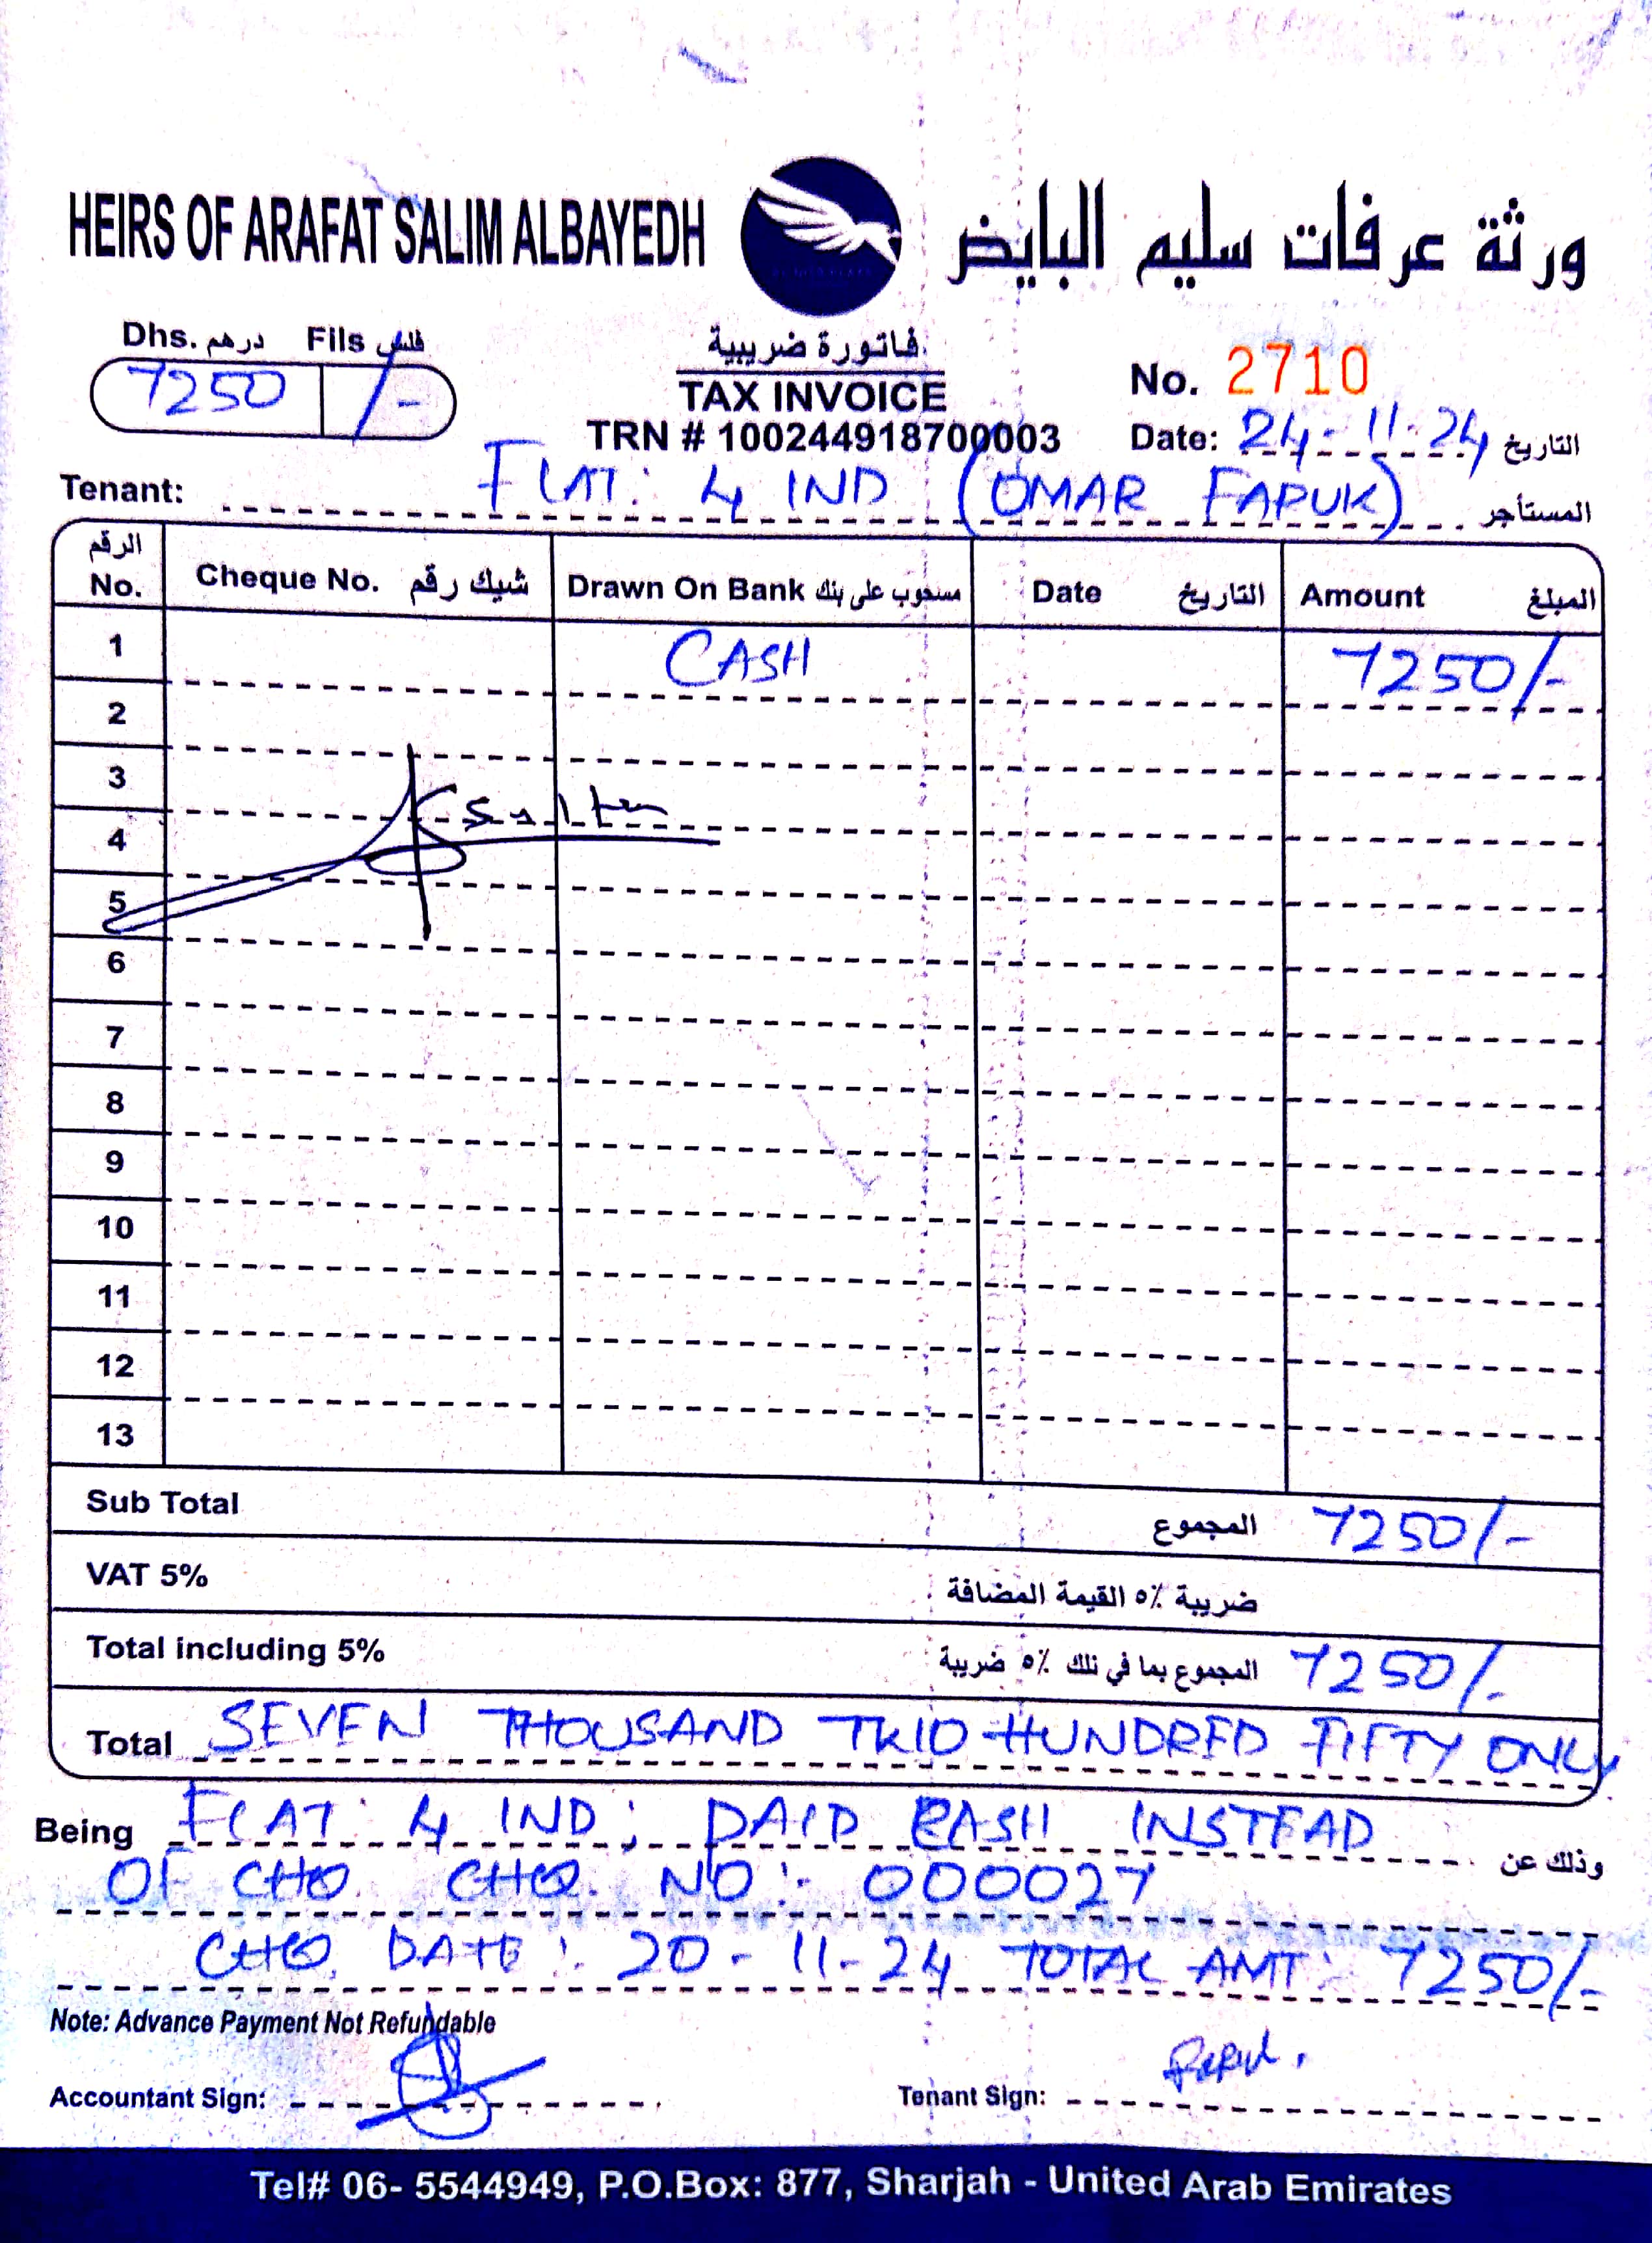 HEIRS OF ARAFAT SALIM ALBAYEDH ورثة عرفات سليم البايض
Dhs. درهم Fils فلس
7250 /-
فاتورة ضريبية
TAX INVOICE
TRN # 100244918700003
No. 2710
Date: 24-11-24 التاريخ
Tenant: FLAT: 4 IND (OMAR FARUK) المستأجر
الرقم No. Cheque No. شيك رقم Drawn On Bank مسحوب على بنك Date التاريخ Amount المبلغ
1 CASH 7250/-
2
3
4
5
6
7
8
9
10
11
12
13
Sub Total المجموع 7250/-
VAT 5% ضريبة ٥٪ القيمة المضافة
Total including 5% المجموع بما في ذلك ٥٪ ضريبة 7250/-
Total SEVEN THOUSAND TWO HUNDRED FIFTY ONLY
Being FLAT: 4 IND; PAID CASH INSTEAD وذلك عن
OF CHQ. CHQ. NO:- 000027
CHQ. DATE: 20-11-24 TOTAL AMT: 7250/-
Note: Advance Payment Not Refundable
Accountant Sign: Tenant Sign:
Tel# 06- 5544949, P.O.Box: 877, Sharjah - United Arab Emirates